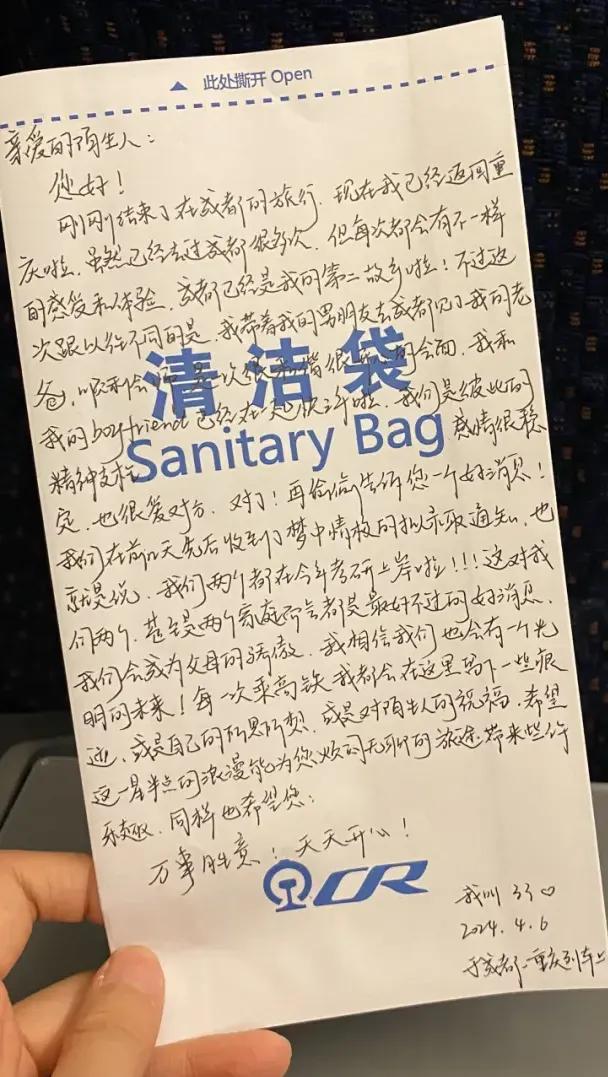 此处撕开 Open
亲爱的陌生人：
您好！
刚刚结束了在成都的旅行，现在我已经返回重
庆啦，虽然已经去过成都很多次，但每次都会有不一样
的感受和体验，成都已经是我的第二故乡啦！不过这
次跟以往不同的是，我带着我的男朋友去成都见了我的老
爸，顺利会面，是一次很和谐很开心的会面，我和
清洁袋
我的boyfriend已经在一起很久啦，我们是彼此的
Sanitary Bag
精神支柱，感情很稳
定，也很爱对方，对了！再偷偷告诉您一个好消息！
我们在前几天先后收到了梦中情校的拟录取通知，也
就是说，我们两个都在今年考研上岸啦！！！这对我
们两个，甚至是两个家庭而言都是最好不过的好消息，
我们会成为父母的骄傲，我相信我们也会有一个光
明的未来！每一次乘高铁我都会在这里写下一些痕
迹，或是自己的所思所想，或是对陌生人的祝福，希望
这一星半点的浪漫能为您或的无聊的旅途带来些许
乐趣，同样也希望您：
万事胜意！天天开心！
CR
我叫 33♡
2024.4.6
于成都-重庆列车上